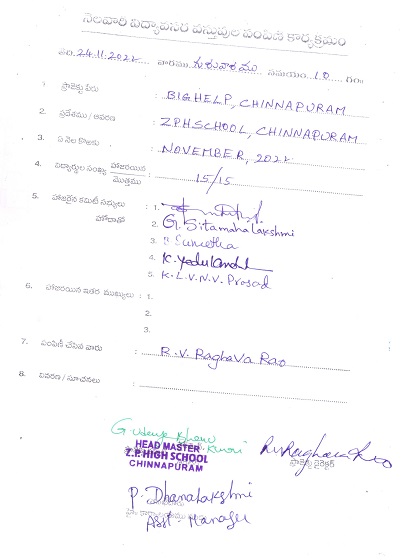 నెలవారి విద్యావసర వస్తువుల పంపిణి కార్యక్రమం
తేది. 24.11.2022 వారము గురువారము సమయం. 10 గం॥
1. ప్రాజెక్టు పేరు : BIGHELP, CHINNAPURAM
2. ప్రదేశము / ఆవరణ : ZPHSCHOOL, CHINNAPURAM
3. ఏ నెల కొరకు : NOVEMBER, 2022
4. విద్యార్థుల సంఖ్య హాజరయిన / మొత్తము : 15/15
5. హాజరైన కమిటీ సభ్యులు : 1.
హోదాతో 2. G. Sitamahalakshmi
3. Suneetha
4. K.
5. K.L.V.N.V. Prasad
6. హాజరయిన ఇతర ముఖ్యులు : 1.
2.
3.
7. పంపిణి చేసిన వారు : R.V. Raghava Rao
8. వివరణ / సూచనలు :
HEAD MASTER
Z.P. HIGH SCHOOL
CHINNAPURAM
R.V. Raghava Rao
ప్రాజెక్టు డైరెక్టర్
P. Dhanalakshmi
Asst. Manager